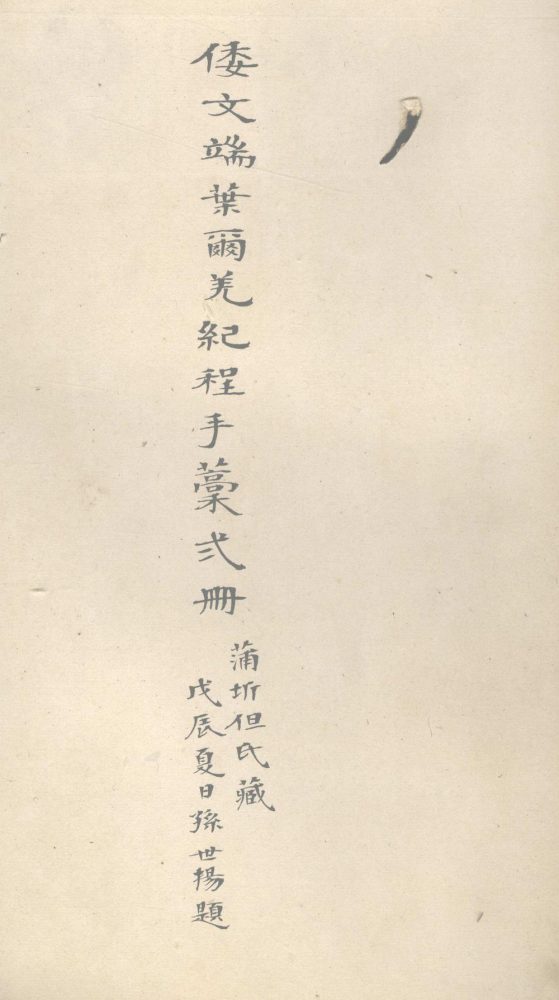 倭文端葉爾羌紀程手藁弍冊
蒲圻但氏藏
戊辰夏日孫世揚題